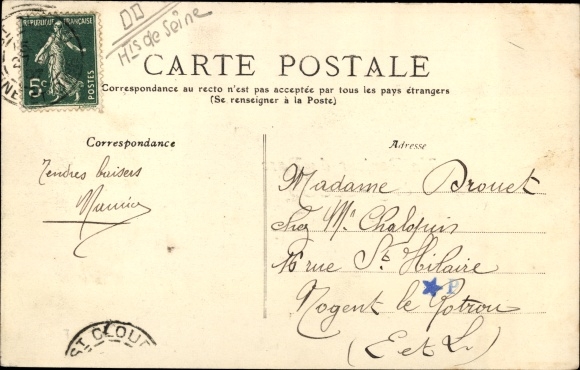 REPUBLIQUE FRANÇAISE
5c
POSTES
Hts de Seine
CARTE POSTALE
Correspondance au recto n'est pas acceptée par tous les pays étrangers
(Se renseigner à la Poste)
Correspondance
Tendres baisers
Maurice
Adresse
Madame Drouet
chez Mn Chalopin
16 rue St Hilaire
Nogent le Rotrou
(E et L)
P
ST CLOUD